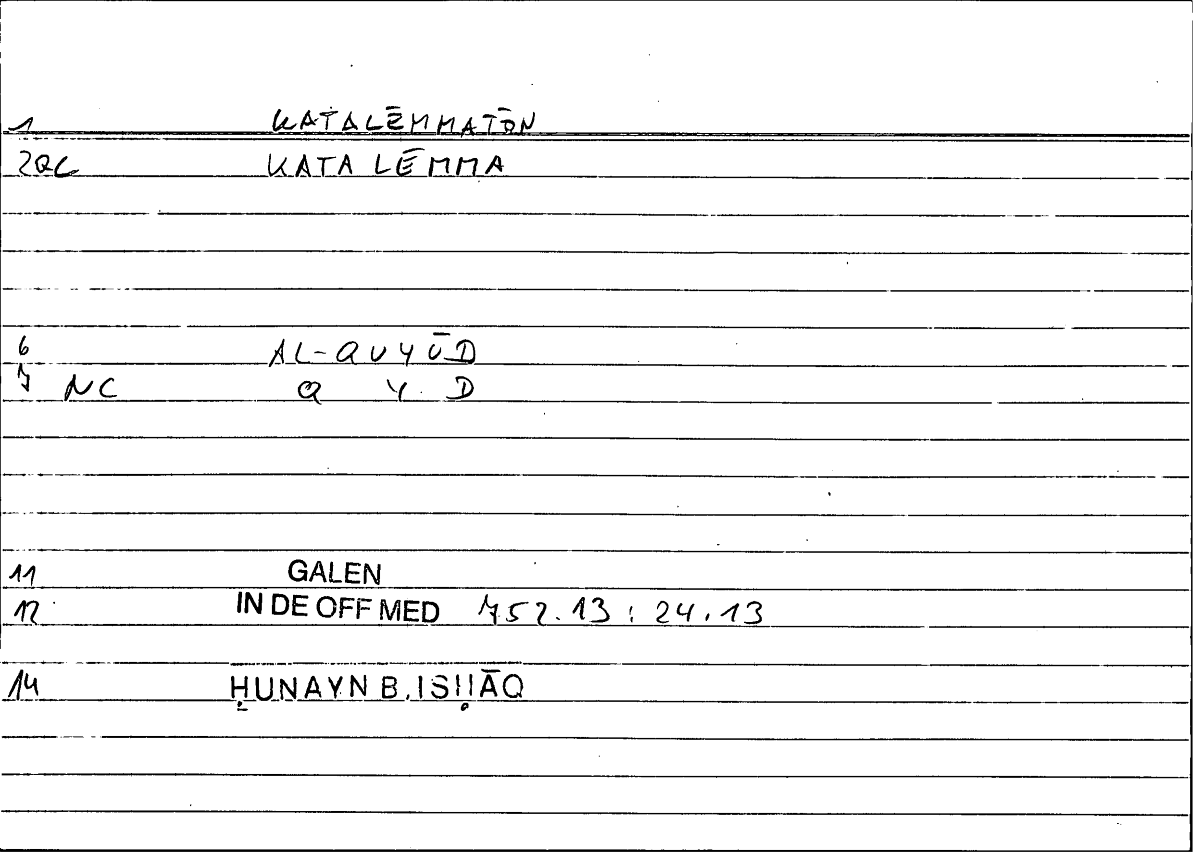 1 KATALĒMMATŌN
2QC KATA LĒMMA
6 AL-QUYŪD
7 NC Q Y D
11 GALEN
12 IN DE OFF MED 752.13 : 24.13
14 ḤUNAYN B. ISḤĀQ